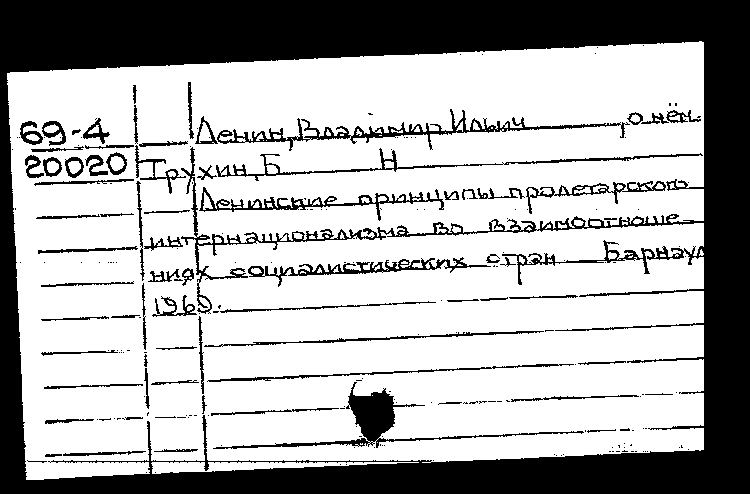 69-4 Ленин, Владимир Ильич , о нём.
20020 Трухин, Б Н
Ленинские принципы пролетарского
интернационализма во взаимоотноше-
ниях социалистических стран Барнаул
1969.